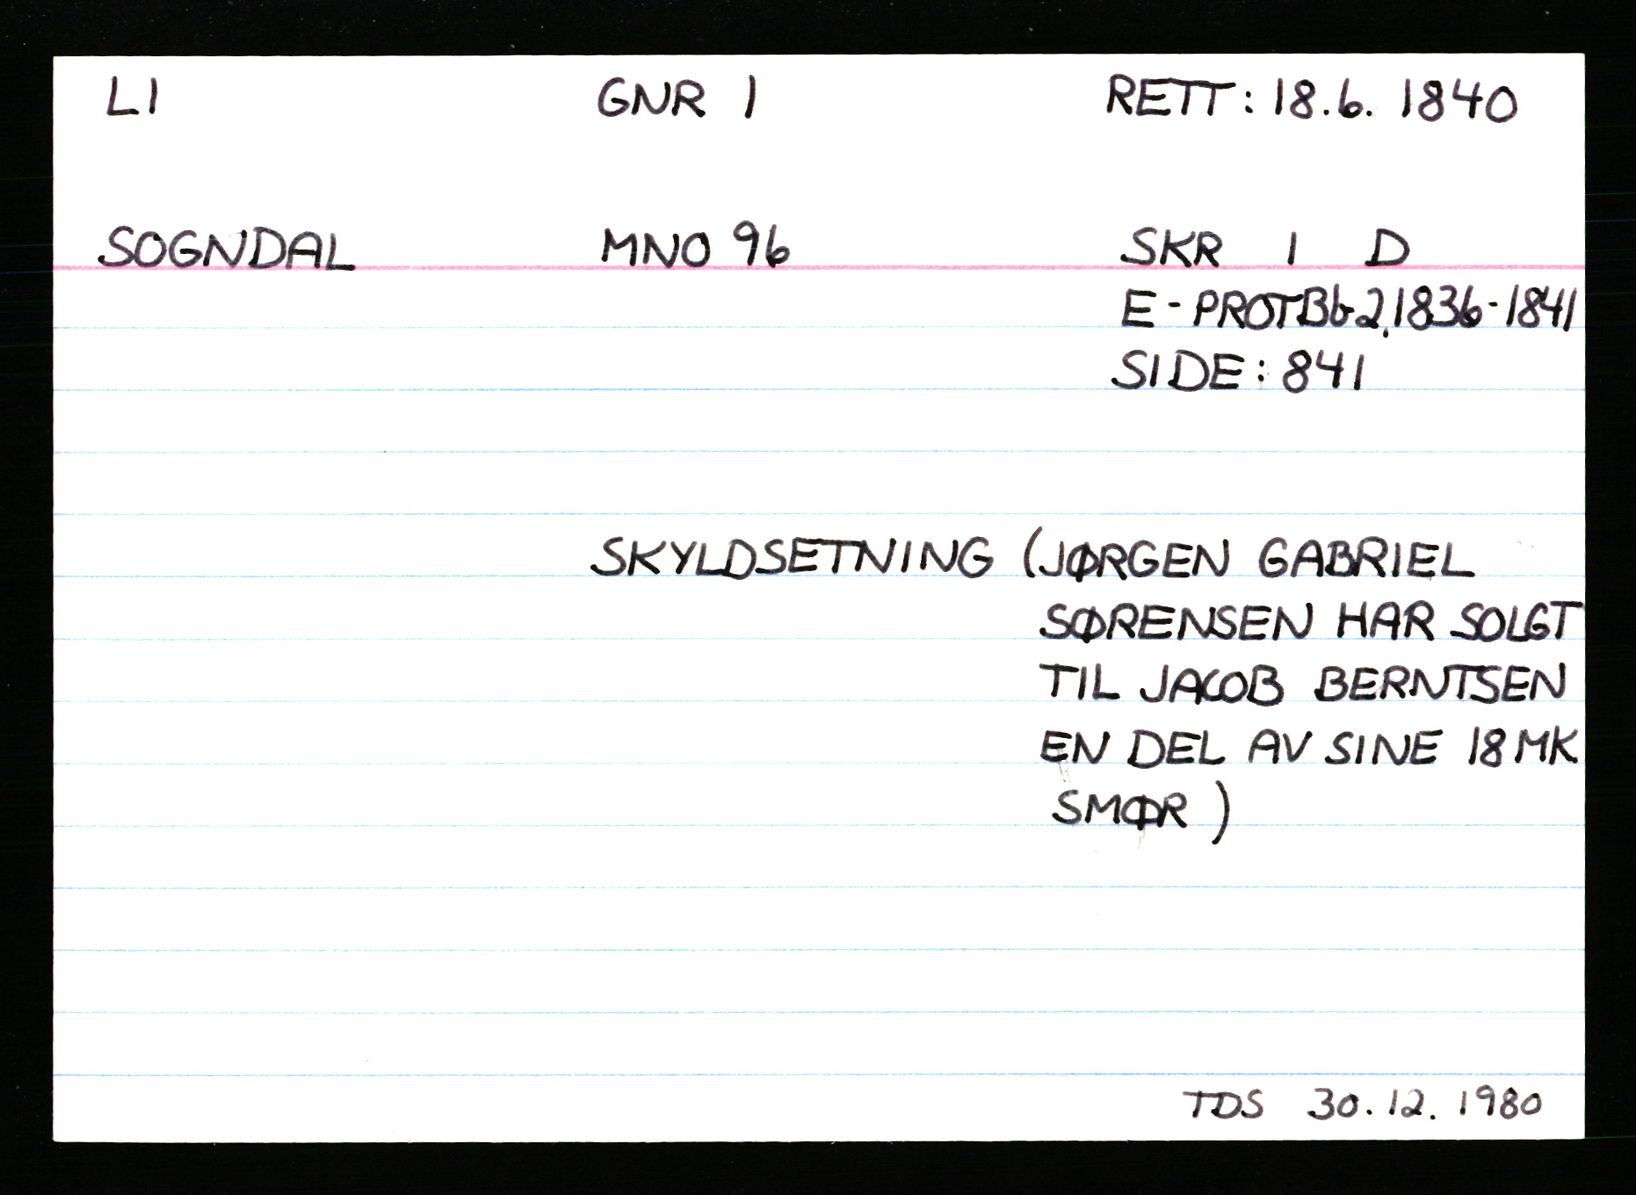 LI GNR 1 RETT: 18.6. 1840
SOGNDAL MNO 96 SKR 1 D
E-PROTBb2,1836-1841
SIDE: 841
SKYLDSETNING (JØRGEN GABRIEL
SØRENSEN HAR SOLGT
TIL JACOB BERNTSEN
EN DEL AV SINE 18 MK
SMØR)
TDS 30.12.1980